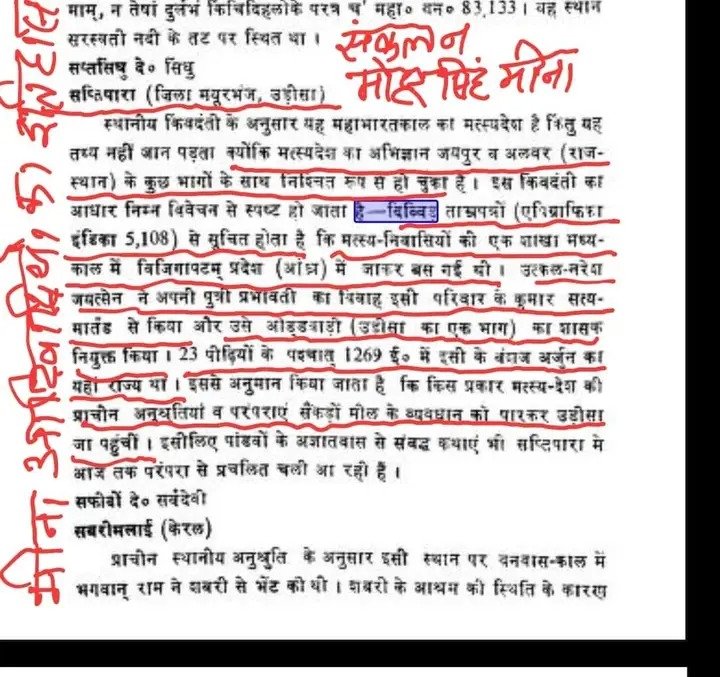 माम्, न तेषां दुर्लभं किंचिदिहलोके परत्र च' महा० वन० 83,133। यह स्थान
सरस्वती नदी के तट पर स्थित था।
सप्तसिंधु दे० सिंधु
सप्तिपारा (जिला मयूरभंज, उड़ीसा)
स्थानीय किंवदंती के अनुसार यह महाभारतकाल का मत्स्यदेश है किंतु यह
तथ्य नहीं जान पड़ता क्योंकि मत्स्यदेश का अभिज्ञान जयपुर व अलवर (राज-
स्थान) के कुछ भागों के साथ निश्चित रूप से हो चुका है। इस किंवदंती का
आधार निम्न विवेचन से स्पष्ट हो जाता है—दिब्बिड़ ताम्रपत्रों (एपिग्राफिका
इंडिका 5,108) से सूचित होता है कि मत्स्य-निवासियों की एक शाखा मध्य-
काल में विजिगापटम् प्रदेश (आंध्र) में जाकर बस गई थी। उत्कल-नरेश
जयत्सेन ने अपनी पुत्री प्रभावती का विवाह इसी परिवार के कुमार सत्य-
मार्तंड से किया और उसे ओड्डवाड़ी (उड़ीसा का एक भाग) का शासक
नियुक्त किया। 23 पीढ़ियों के पश्चात् 1269 ई० में इसी के वंशज अर्जुन का
यहाँ राज्य था। इससे अनुमान किया जाता है कि किस प्रकार मत्स्य-देश की
प्राचीन अनुश्रुतियां व परंपराएं सैकड़ों मील के व्यवधान को पारकर उड़ीसा
जा पहुंचीं। इसीलिए पांडवों के अज्ञातवास से संबद्ध कथाएं भी सप्तिपारा मे
आज तक परंपरा से प्रचलित चली आ रही हैं।
सफीदों दे० सर्वदेवी
सबरीमलाई (केरल)
प्राचीन स्थानीय अनुश्रुति के अनुसार इसी स्थान पर वनवास-काल में
भगवान् राम ने शबरी से भेंट की थी। शबरी के आश्रम की स्थिति के कारण
संकलन
मोहर सिंह मीना
मीना आदिवासियों का इतिहास